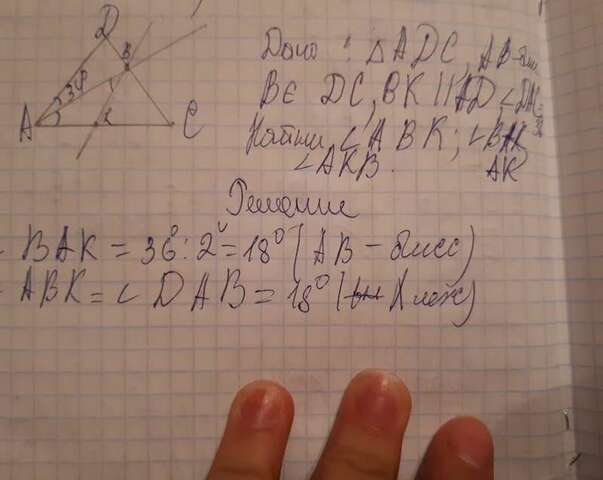 D
B
36°
1
A
K
C
Дано: △ADC, AB-бис
B∈ DC, BK || AD, ∠DAC
Найти ∠ABK; ∠BAK
∠AKB.
Решение
BAK = 36°:2 = 18° (AB - бисс)
ABK = ∠DAB = 18° (